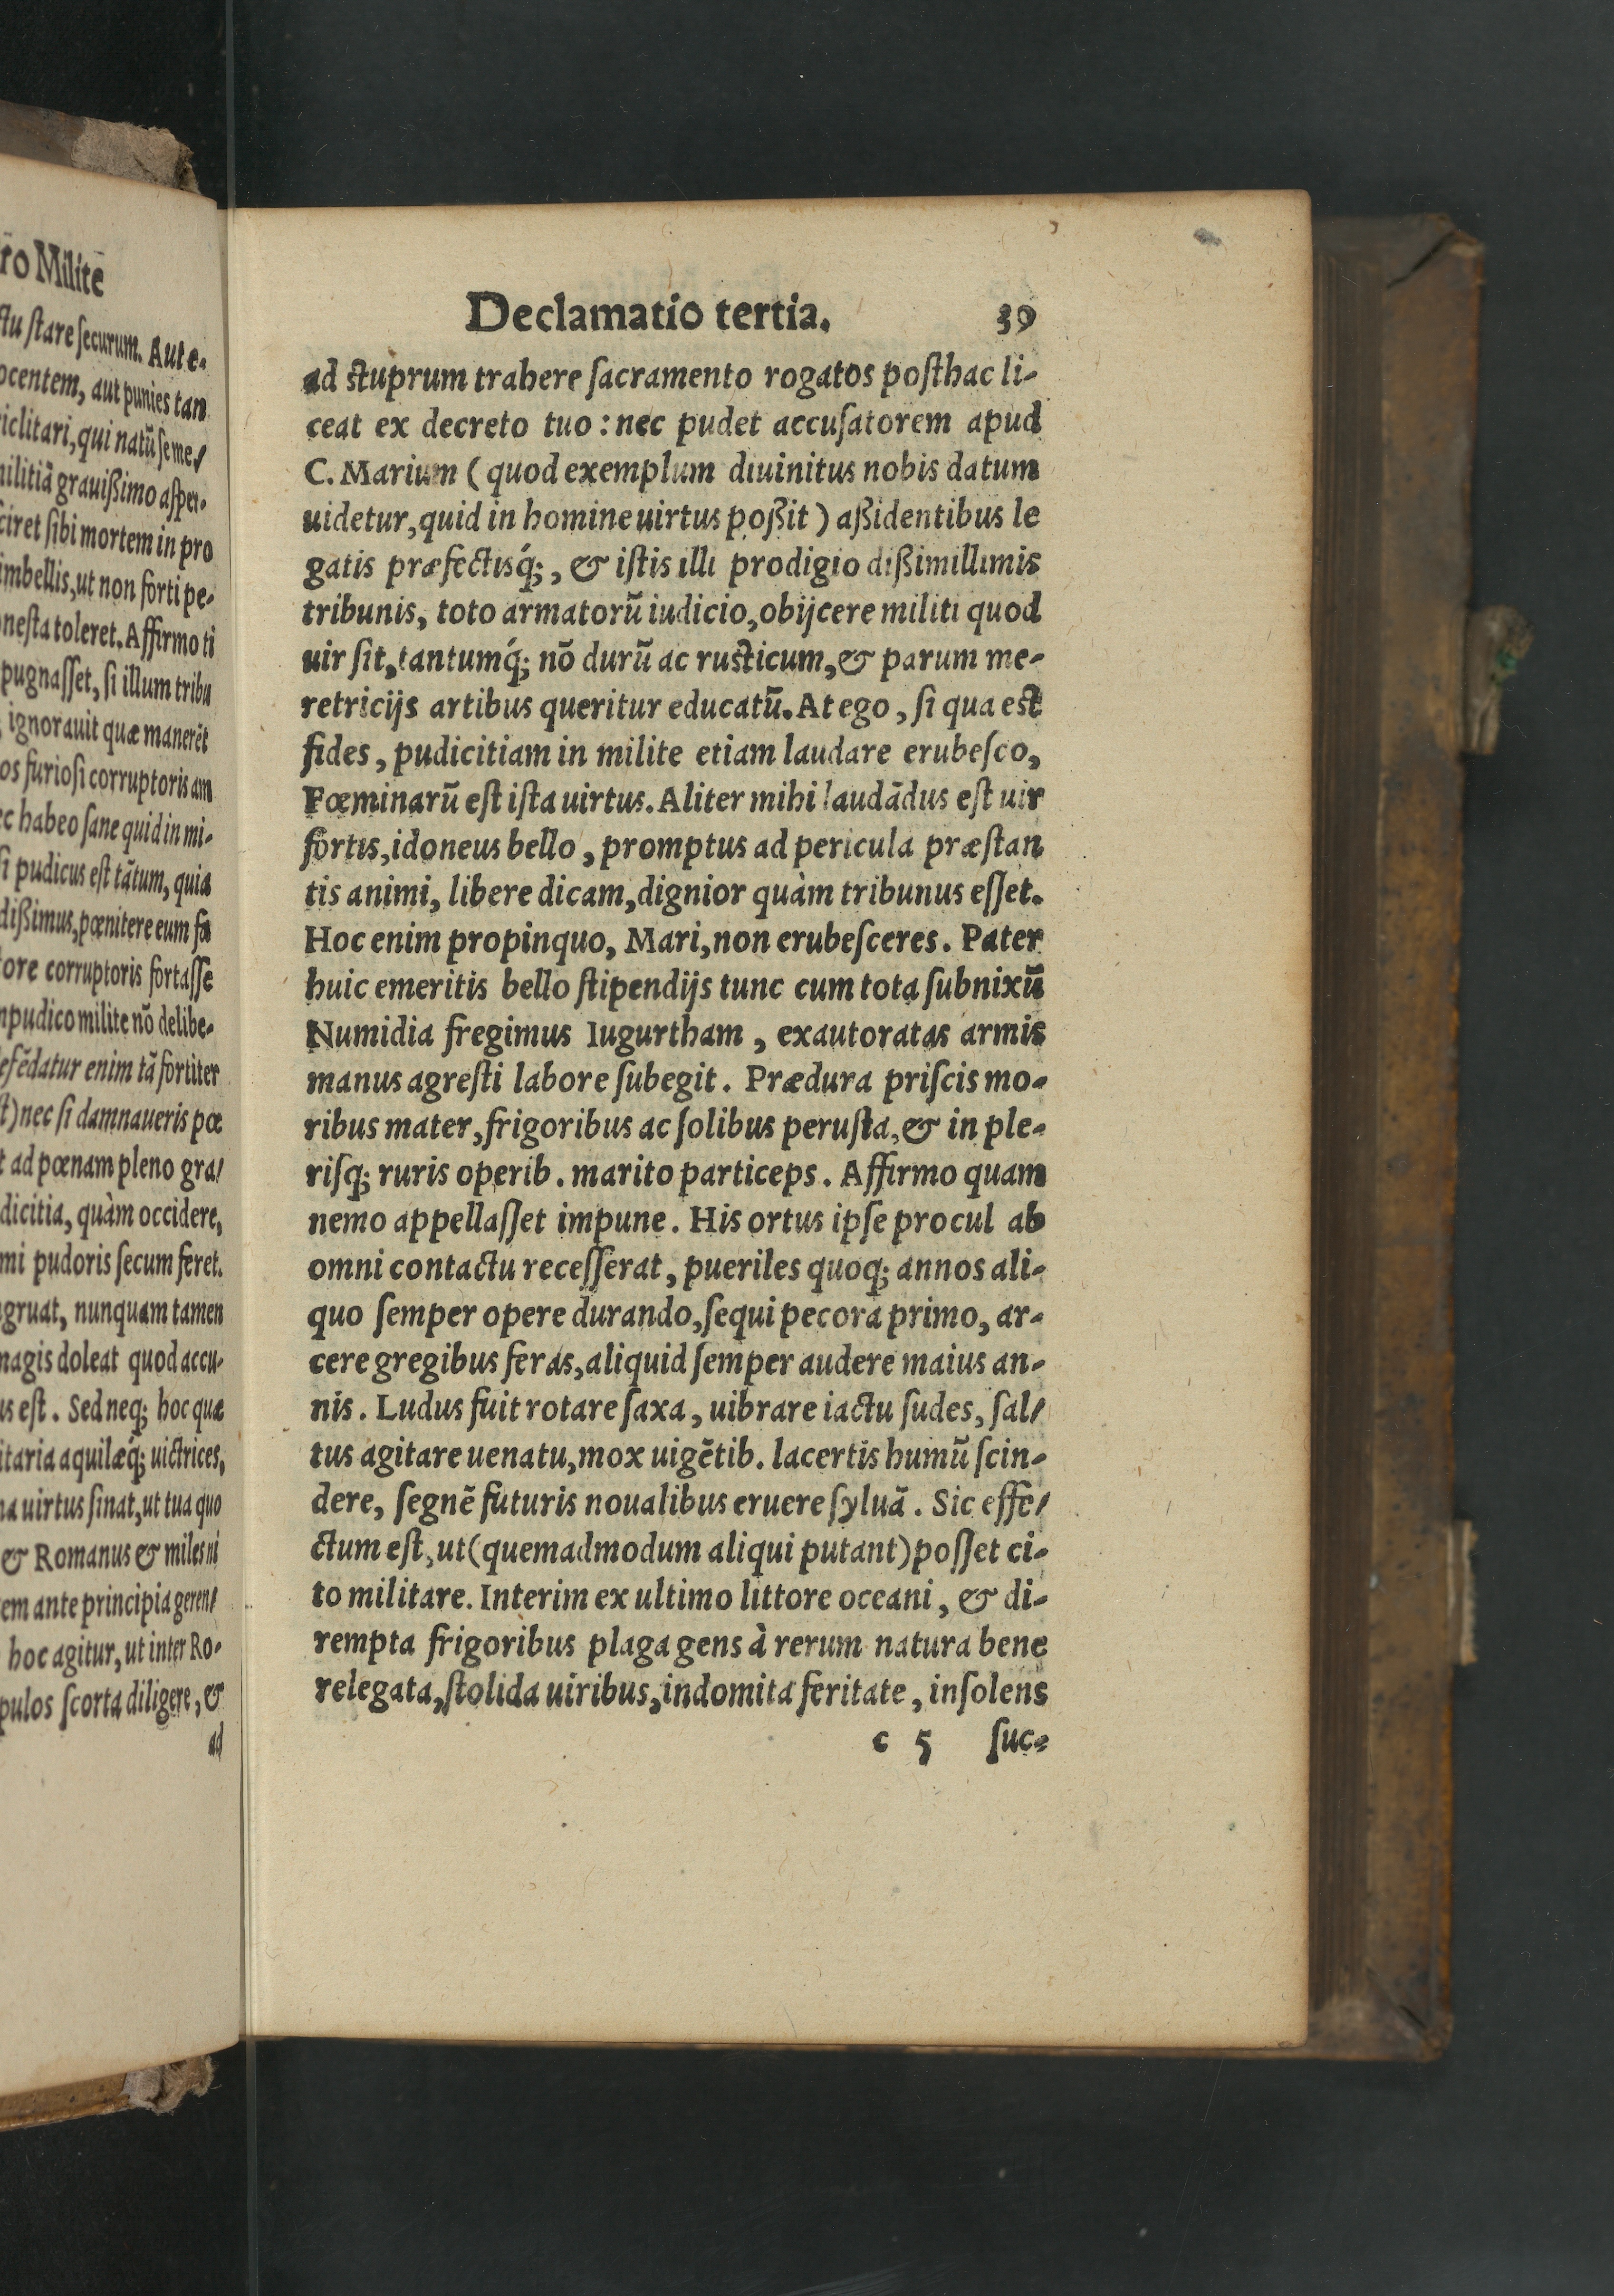 ro Milite
ctu stare securum. Aut e-
ocentem, aut punies tan
iclitari, qui natū seme/
militiā grauißimo asper-
ciret sibi mortem in pro
imbellis, ut non forti pe-
nesta toleret. Affirmo ti
pugnasset, si illum tribu
ignorauit quæ manerēt
os furiosi corruptoris am
ec habeo sane quid in mi-
si pudicus est tātum, quia
dißimus, pœnitere eum fa
tore corruptoris fortasse
mpudico milite nō delibe-
efēdatur enim tā fortiter
st) nec si damnaueris pœ
t ad pœnam pleno gra/
dicitia, quàm occidere,
mi pudoris secum feret.
ngruat, nunquam tamen
magis doleat quod accu-
us est. Sed neq; hoc quæ
itaria aquilæq́; uictrices,
na uirtus sinat, ut tua quo
& Romanus & miles ni
em ante principia geren/
hoc agitur, ut inter Ro-
pulos scorta diligere, &
ad
Declamatio tertia. 39
ad stuprum trahere sacramento rogatos posthac li-
ceat ex decreto tuo: nec pudet accusatorem apud
C. Marium (quod exemplum diuinitus nobis datum
uidetur, quid in homine uirtus poßit) aßidentibus le
gatis præfectisq́;, & istis illi prodigio dißimillimis
tribunis, toto armatorū iudicio, obijcere militi quod
uir sit, tantumq́; nō durū ac rusticum, & parum me-
retricijs artibus queritur educatū. At ego, si qua est
fides, pudicitiam in milite etiam laudare erubesco,
Fœminarū est ista uirtus. Aliter mihi laudādus est uir
fortis, idoneus bello, promptus ad pericula præstan
tis animi, libere dicam, dignior quàm tribunus esset.
Hoc enim propinquo, Mari, non erubesceres. Pater
huic emeritis bello stipendijs tunc cum tota subnixū
Numidia fregimus Iugurtham, exautoratas armis
manus agresti labore subegit. Prædura priscis mo-
ribus mater, frigoribus ac solibus perusta, & in ple-
risq; ruris operib. marito particeps. Affirmo quam
nemo appellasset impune. His ortus ipse procul ab
omni contactu recesserat, pueriles quoq; annos ali-
quo semper opere durando, sequi pecora primo, ar-
cere gregibus feras, aliquid semper audere maius an-
nis. Ludus fuit rotare saxa, uibrare iactu sudes, sal/
tus agitare uenatu, mox uigētib. lacertis humū scin-
dere, segnē futuris noualibus eruere syluā. Sic effe/
ctum est, ut (quemadmodum aliqui putant) posset ci-
to militare. Interim ex ultimo littore oceani, & di-
rempta frigoribus plaga gens à rerum natura bene
relegata, stolida uiribus, indomita feritate, insolens
c 5 suc-